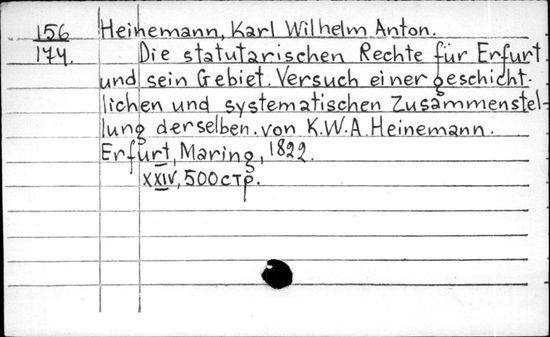 156 Heinemann, Karl Wilhelm Anton.
174. Die statutarischen Rechte für Erfurt
und sein Gebiet. Versuch einer geschicht-
lichen und systematischen Zusammenstel-
lung derselben. von K.W.A. Heinemann.
Erfurt, Maring, 1822.
XXIV, 500 стр.